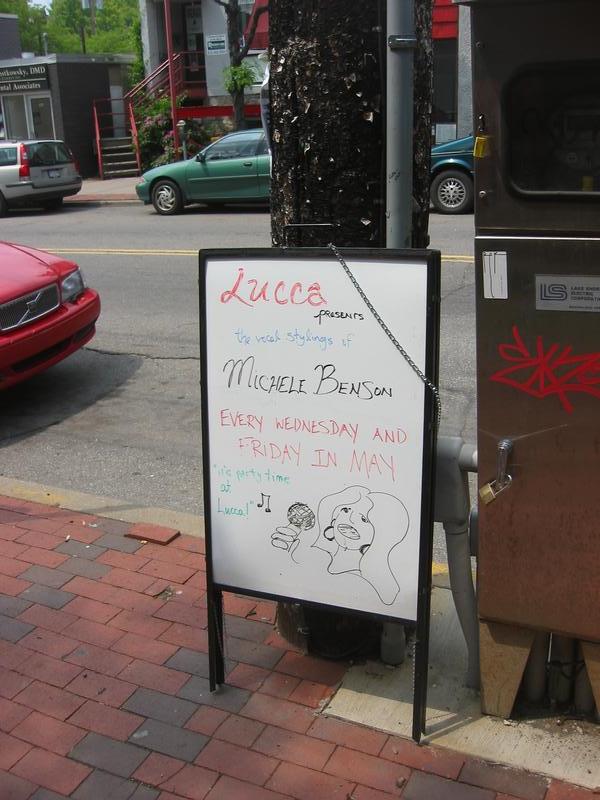 Lucca
presents
the vocal stylings of
MICHELE BENSON
EVERY WEDNESDAY AND
FRIDAY IN MAY
"it's party time
at
Lucca!"
DMD
ntal Associates
LS
LAKE SHORE
ELECTRIC
CORPORATION